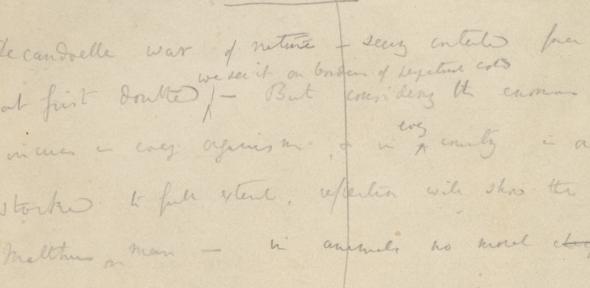 Decandolle war of nature — seeing contented face
we see it on borders of perpetual cold
at first doubted — But considering the enormous
increase in every organism, & in
every
country in a
stocked to full extent, reflection will show the
Malthus on man — in animals no moral